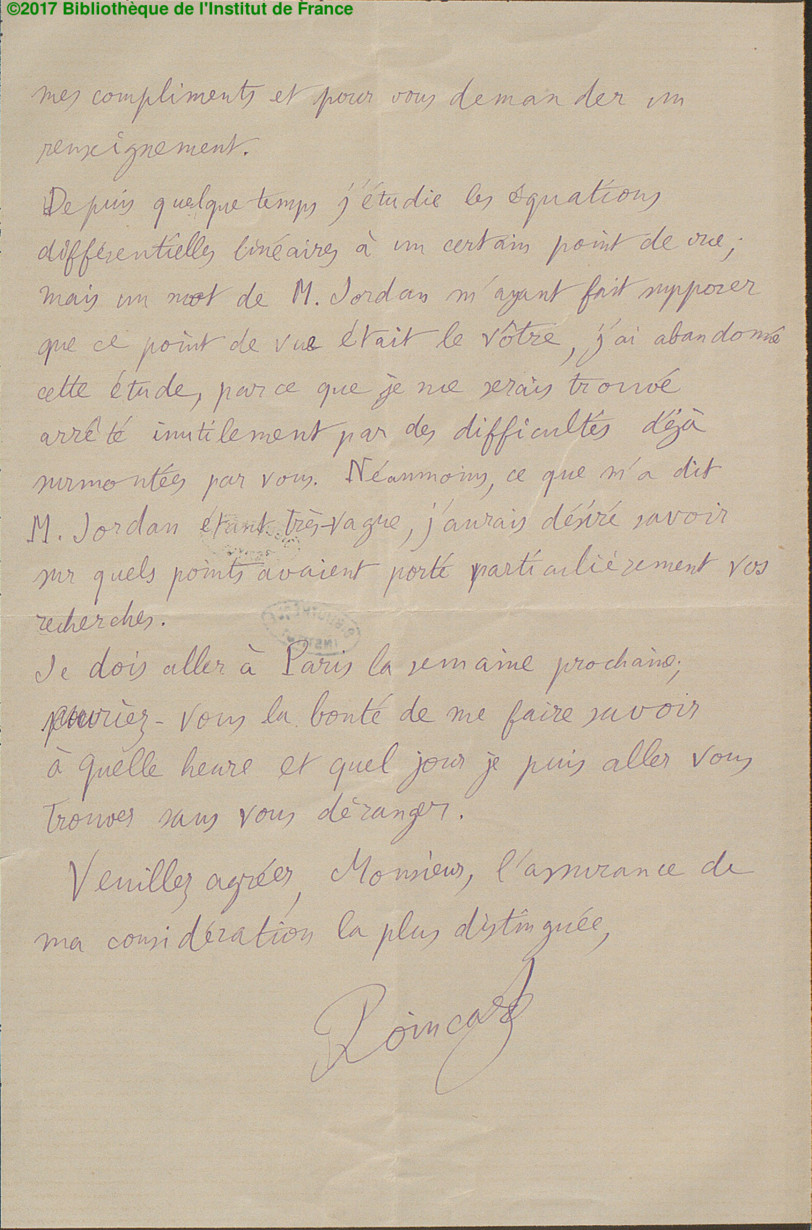 ©2017 Bibliothèque de l'Institut de France
mes compliments et pour vous demander un
renseignement.
Depuis quelque temps j'étudie les équations
différentielles linéaires à un certain point de vue;
mais un mot de M. Jordan m'ayant fait supposer
que ce point de vue était le vôtre, j'ai abandonné
cette étude, parce que je me serais trouvé
arrêté inutilement par des difficultés déjà
surmontées par vous. Néanmoins, ce que m'a dit
M. Jordan étant très-vague, j'aurais désiré savoir
sur quels points avaient porté particulièrement vos
recherches.
Je dois aller à Paris la semaine prochaine;
auriez-vous la bonté de me faire savoir
à quelle heure et quel jour je puis aller vous
trouver sans vous déranger.
Veuillez agréer, Monsieur, l'assurance de
ma considération la plus distinguée,
Poincaré